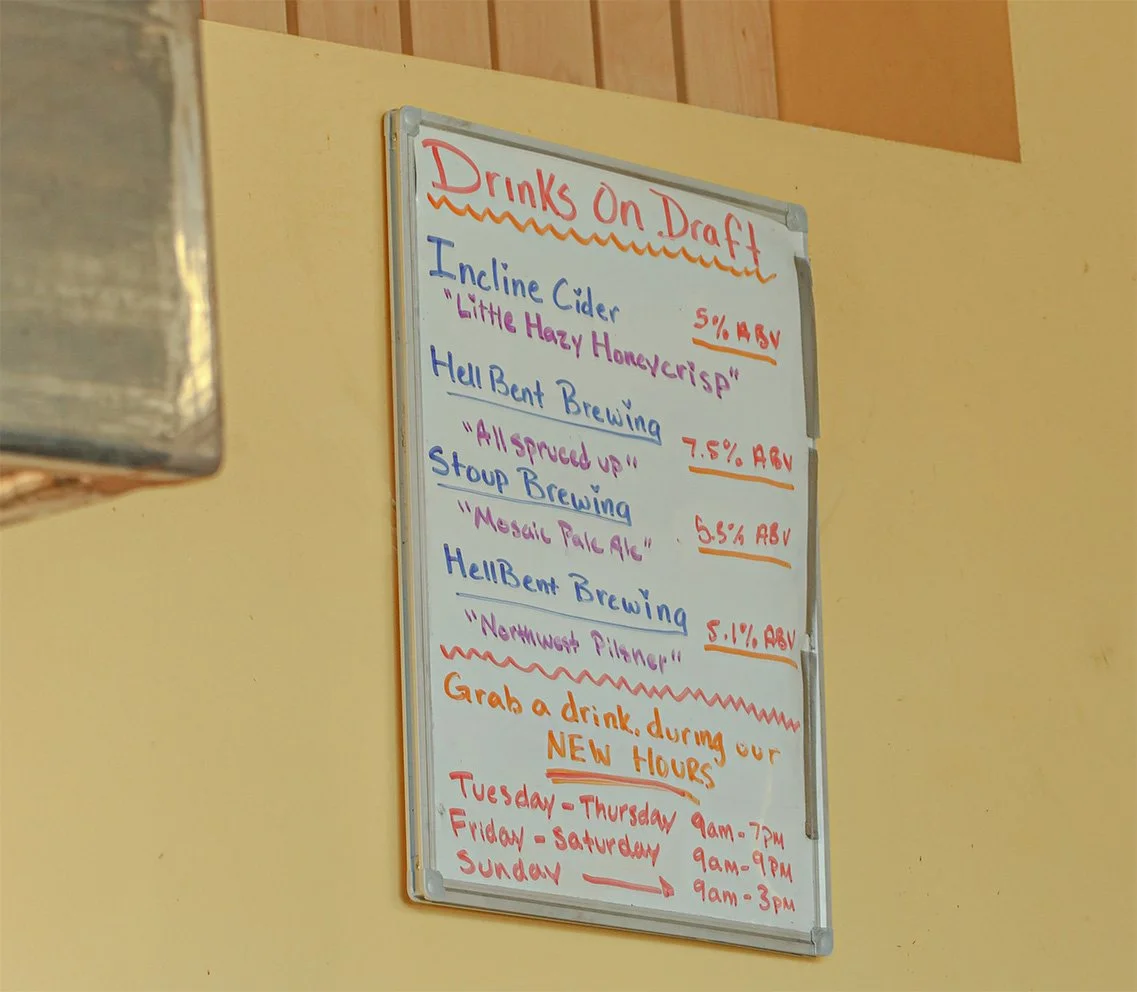 Drinks On Draft
Incline Cider
"Little Hazy Honeycrisp" 5% ABV
Hell Bent Brewing
"All spruced up" 7.5% ABV
Stoup Brewing
"Mosaic Pale Ale" 5.5% ABV
HellBent Brewing
"Northwest Pilsner" 5.1% ABV
Grab a drink. during our
NEW HOURS
Tuesday - Thursday 9am - 7PM
Friday - Saturday 9am - 9PM
Sunday → 9am - 3PM